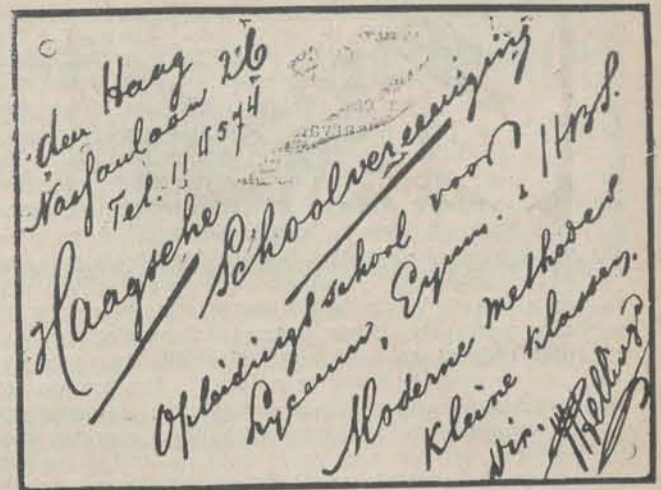 den Haag
Nassaulaan 26
Tel. 114574
Haagsche
Schoolvereeniging
Opleidingsschool voor
Lyceum, Gymn. & HBS.
Moderne methodes
Kleine klassen.
Dir.